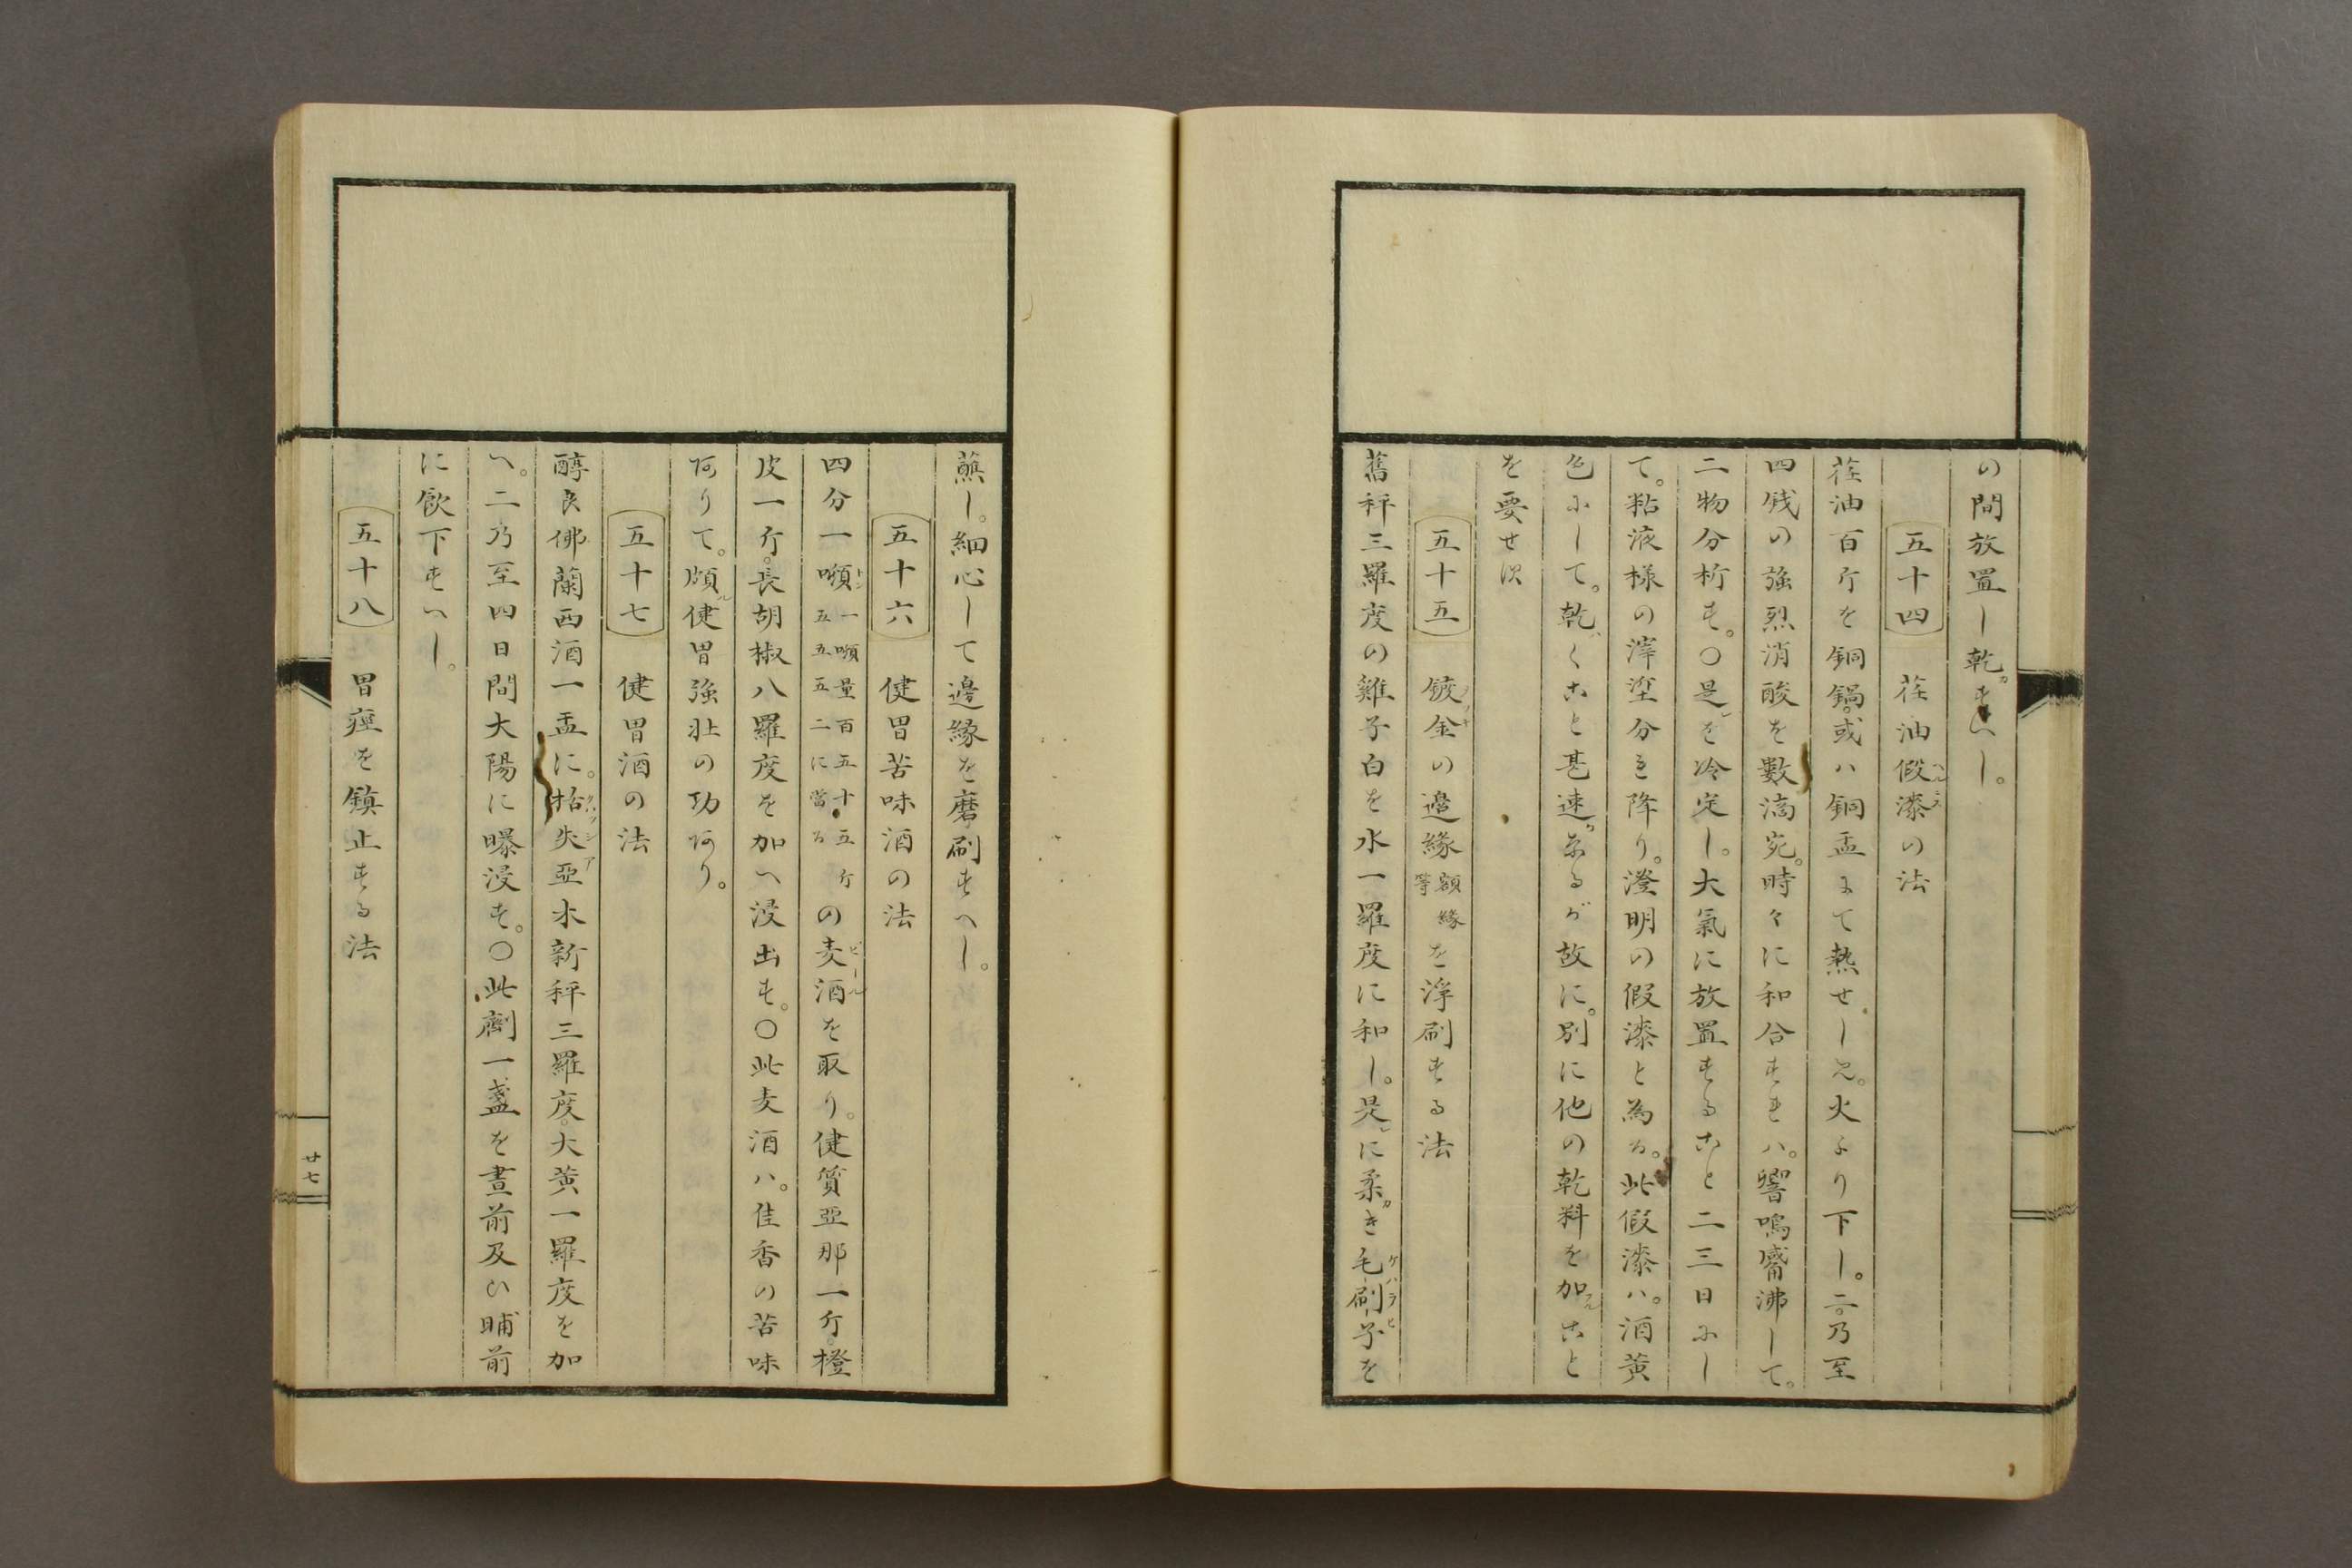 の間放置し乾かすへし。
五十四　荏油假漆の法
荏油百斤を銅鍋。或ハ銅盂にて熱せしめ。火より下し。二。乃至
四錢の強烈消酸を數滴宛。時々に和合すれハ。響鳴沸して。
二物分析す。〇是を冷定し。大氣に放置することニ三日にし
て。粘液様の滓埿分れ降り。澄明の假漆と為る。此假漆ハ。酒黄
色にして。乾くこと甚速なるが故に。別に他の乾料を加ること
を要せす
五十五　鍍金の邊緣額緣等を浄刷する法
舊秤三羅度の雞子白を水一羅度に和し。是に柔き毛刷子を
蘸し。細心して邊緣を磨刷すへし。
五十六　健胃苦味酒の法
四分一噸一噸量百五十五斤五五五二に當るの麦酒を取り。健質亞那一斤。橙
皮一斤。長胡椒八羅度を加へ浸出す。〇此麦酒ハ。佳香の苦味
阿りて。頗健胃強壯の功阿り。
五十七　健胃酒の法
醇良佛蘭西酒一盂に。枯失亞木新秤三羅度。大黄一羅度を加
へ。二乃至四日間大陽に曝浸す。〇此劑一盞を晝前及ひ晡前
に飲下すへし。
五十八　胃痙を鎮止する法
廿七